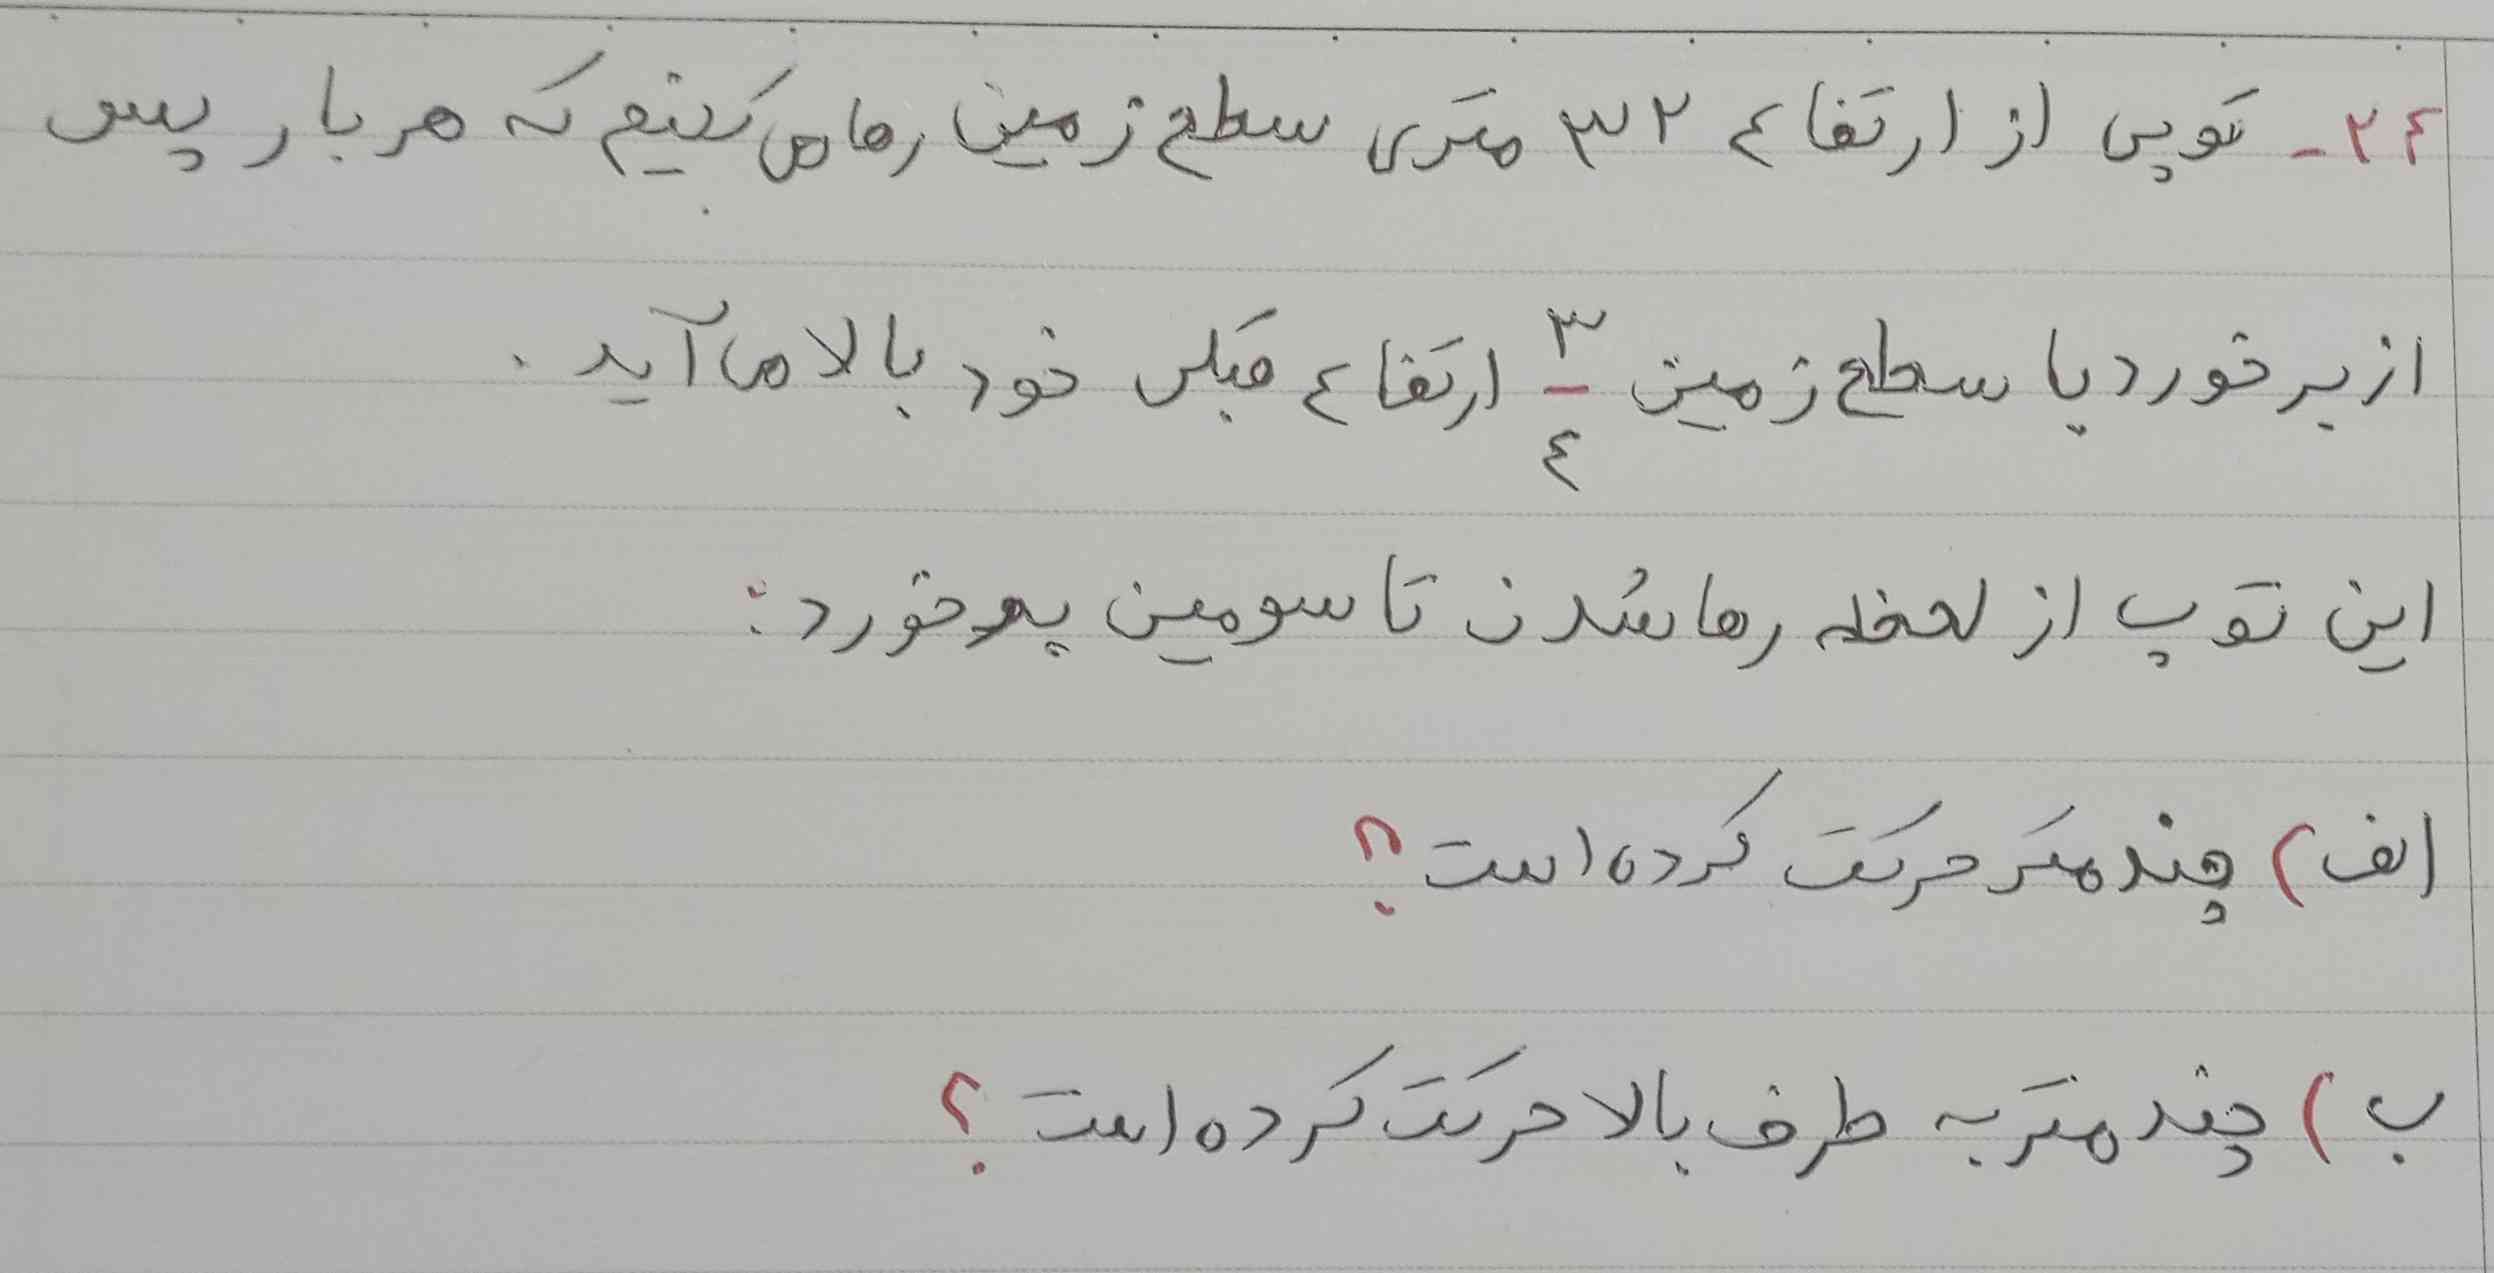 ۲۴- توپی از ارتفاع ۳۲ متری سطح زمین رها می کنیم که هر بار پس
از برخورد با سطح زمین ۳/۴ ارتفاع قبلی خود بالا می آید.
این توپ از لحظه رها شدن تا سومین برخورد:
الف) چند متر حرکت کرده است؟
ب) چند متر به طرف بالا حرکت کرده است؟